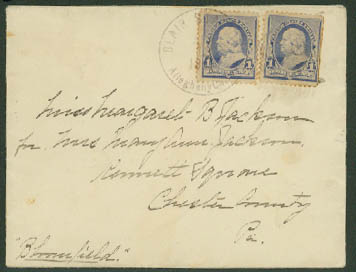 BLAIR
Alleghany Co.
1 1
1 1
Miss Margaret B Jackson
for Mrs Mary Ann Jackson,
Kennett Square
Chester County
Pa.
"Bloomfield."